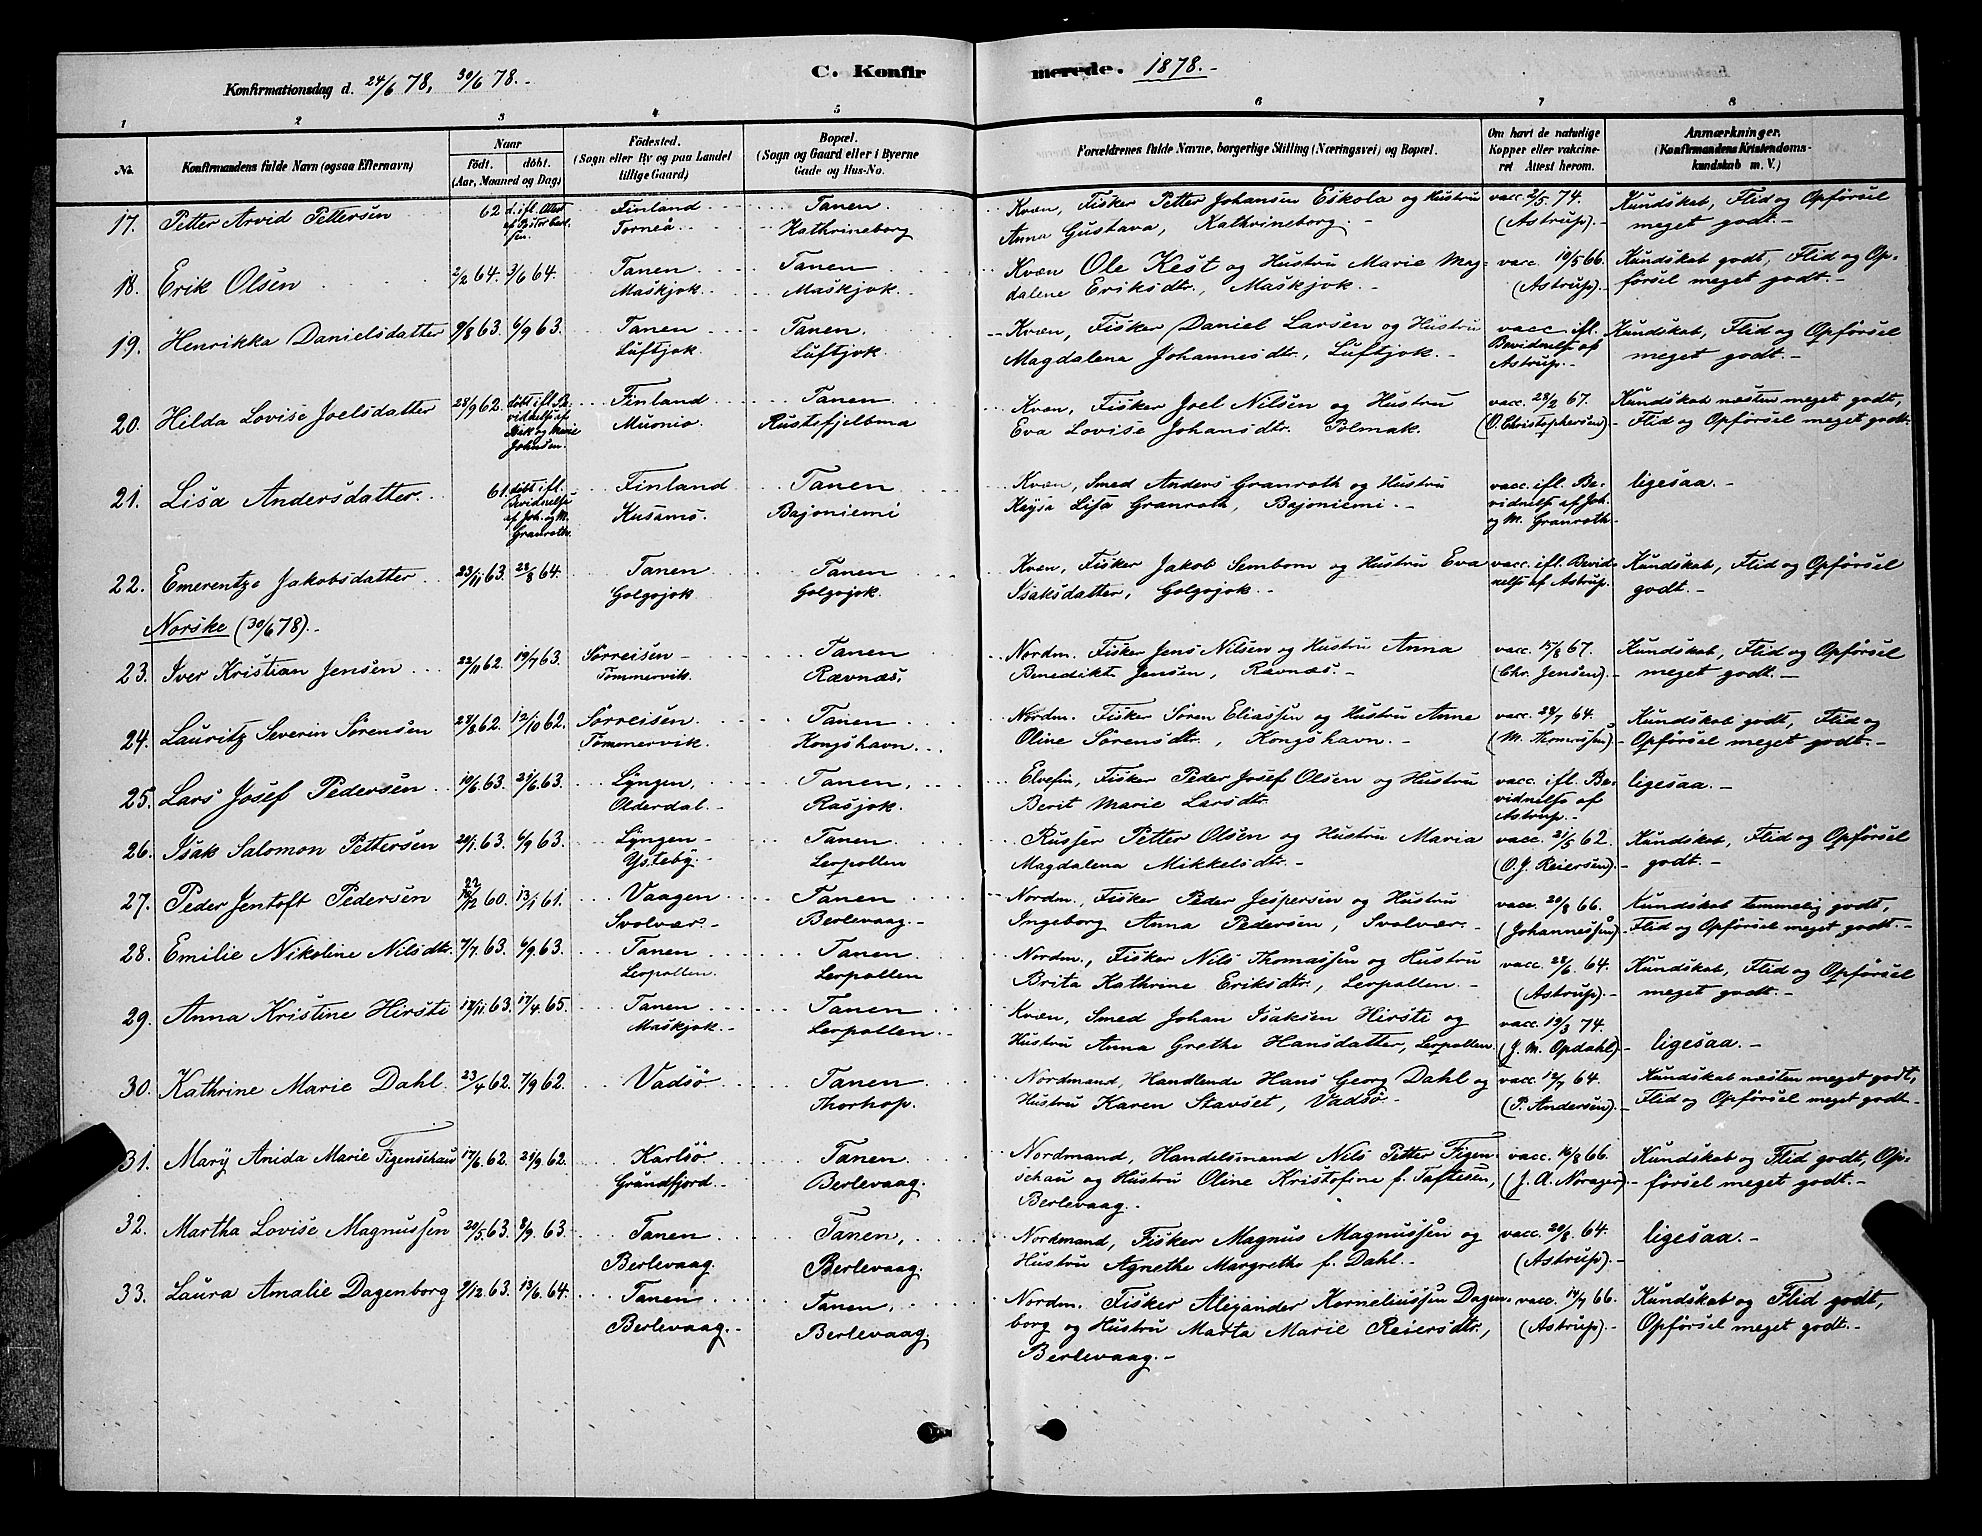 Konfirmationsdag d. 24/6 78, 30/6 78.-
C. Konfirmerede. 1878.-
1 2 3 4 5 6 7 8
No. Konfirmandens fulde Navn (ogsaa Efternavn) Naar Födt. döbt. (Aar, Maaned og Dag) Födested. (Sogn eller By og paa Landet tillige Gaard) Bopæl. (Sogn og Gaard eller i Byerne Gade og Hus-No. Forældrenes fulde Navne, borgerlige Stilling (Næringsvei) og Bopæl. Om havt de naturlige Kopper eller vakcineret Attest herom. Anmærkninger. (Konfirmandens Kristendomskundskab m. V.)
17. Petter Arvid Pettersen 62 Finland Tanen Kvæn, Fisker Petter Johansen Eskola og Hustru vacc. 2/5 74. Kundskab, Flid og Opførsel
Torneå Kathrineborg Anna Gustava, Kathrineborg.- (Astrup).- meget godt.-
18. Erik Olsen 2/2 64. 3/6 64. Tanen Tanen Kvæn Ole Kest og Hustru Marie Mag- vacc. 19/5 66. Kundskab godt, Flid og Op-
Maskjok.- Maskjok.- dalene Eriksdtr., Maskjok.- (Astrup).- førsel meget godt.-
19. Henrikka Danielsdatter 9/8 63. 6/9 63. Tanen Tanen. Kvæn, Fisker Daniel Larsen og Hustru vacc. ifl. Kundskab, Flid og Opførsel
Luftjok Luftjok. Magdalena Johannesdtr., Luftjok.- Bevidnelse af Astrup.- meget godt.-
20. Hilda Lovise Joelsdatter 28/9 62. döbt ifl. Be- Finland Tanen Kvæn, Fisker Joel Nilsen og Hustru vacc. 28/2 67. Kundskab næsten meget godt,
vidnelse af Muonio. Rustefjelbma Eva Lovise Johansdtr. Polmak. (O. Christophersen).- Flid og Opførsel meget godt.-
Johnsen.
21. Lisa Andersdatter 61. döbt ifl. Finland Tanen Kvæn, Smed Anders Granroth og Hustru vacc. ifl. Be- ligesaa.-
Bevidnelse af Joh. og M. Granroth. Kusamo. Bajoniemi Kaysa Lisa Granroth, Bajoniemi.- vidnelse af Joh. og M. Granroth.-
22. Emerentze Jakobsdatter 23/11 63. 28/8 64. Tanen Tanen Kvæn, Fisker Jakob Sembom og Hustru Eva vacc. ifl. Bevid- Kundskab, Flid og Opførsel
Golgojok Golgojok. Isaksdatter, Golgojok.- nelse af Astrup.- godt.-
Norske (30/6 78).-
23. Iver Kristian Jensen 22/11 62. 19/7 63. Sørreisen- Tanen Nordm. Fisker Jens Nilsen og Hustru Anna vacc. 15/8 67. Kundskab, Flid og Opførsel
Tømmervik. Ravnæs. Benedikt Jensen, Ravnæs.- (Chr. Jensen).- meget godt.-
24. Lauritz Severin Sørensen 28/8 62. 12/10 62. Sørreisen. Tanen Nordm. Fisker Søren Eliassen og Hustru Anne vacc. 28/7 64. Kundskab godt, Flid og
Tømmervik. Kongshavn. Oline Sørensdtr., Kongshavn.- (M. Thomassen).- Opførsel meget godt.-
25. Lars Josef Pedersen 19/6 63. 21/6 63. Lyngen, Tanen, Elvefin, Fisker Peder Josef Olsen og Hustru vacc. ifl. Be- ligesaa.-
Olderdal.- Rasjok. Berit Marie Larsdtr. vidnelse af Astrup.-
26. Isak Salomon Pettersen 20/1 63. 6/9 63. Lyngen- Tanen Russer Petter Olsen og Hustru Maria vacc. 21/5 62. Kundskab, Flid og Opførsel
Ysteby. Lerpollen Magdalena Mikkelsdtr.- (O. J. Reiersen).- godt.-
27. Peder Jentoft Pedersen 22/12 60. 13/1 61. Vaagen Tanen Nordm., Fisker Peder Jespersen og Hustru vacc. 20/8 66. Kundskab temmelig godt,
Svolvær.- Berlevaag.- Ingeborg Anna Pedersen, Svolvær.- (Johannessen).- Flid og Opførsel meget godt.-
28. Emilie Nikoline Nilsdtr. 7/7 63. 6/9 63. Tanen Tanen Nordm., Fisker Nils Thomassen og Hustru vacc. 28/6 64. Kundskab, Flid og Opførsel
Lerpollen. Lerpollen Brita Kathrine Eriksdtr., Lerpollen.- (Astrup).- meget godt.-
29. Anna Kristine Hirsti 17/11 63. 17/4 65. Tanen Tanen Kvæn, Smed Johan Isaksen Hirsti og vacc. 19/3 74.
Maskjok.- Lerpollen. Hustru Anna Grethe Hansdatter, Lerpollen. (J. M. Opdahl).- ligesaa.-
30. Kathrine Marie Dahl. 23/4 62. 7/9 62. Vadsö Tanen Nordmand, Handlende Hans Georg Dahl og vacc. 12/7 64. Kundskab næsten meget godt,
Thorhop. Hustru Karen Stavset, Vadsö.- (P. Andersen).- Flid og Opførsel meget godt.-
31. Mary Anida Marie Figenschau 17/6 62. 21/9 62. Karlsö. Tanen. Nordmand, Handelsmand Nils Petter Figen- vacc. 16/8 66. Kundskab og Flid godt, Op-
Grundfjord.- Berlevaag. schau og Hustru Oline Kristofine f. Taftesen, (J. A. Norager).- førsel meget godt.-
Berlevaag.-
32. Martha Lovise Magnussen 20/5 63. 8/9 63. Tanen Tanen, Nordmand, Fisker Magnus Magnussen og vacc. 20/8 64. ligesaa.-
Berlevaag. Berlevaag. Hustru Agnethe Margrethe f. Dahl.- (Astrup).-
33. Laura Amalie Dagenborg 9/12 63. 13/6 64. Tanen Tanen, Nordm. Fisker Alexander Korneliussen Dagen- vacc. 19/7 66. Kundskab og Flid godt,
Berlevaag.- Berlevaag. borg og Hustru Marta Marie Reiersdtr., (Astrup).- Opførsel meget godt.-
Berlevaag.-